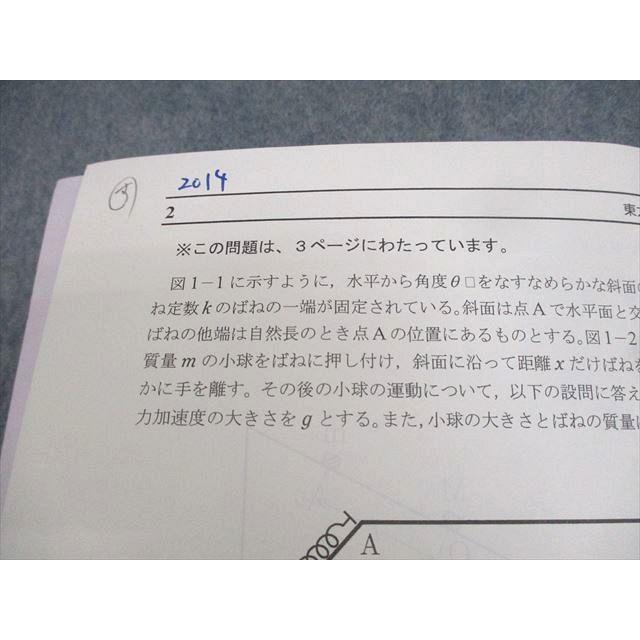 2014
2
東
※この問題は、3ページにわたっています。
図1-1に示すように,水平から角度θ□をなすなめらかな斜面の
ね定数kのばねの一端が固定されている。斜面は点Aで水平面と交
ばねの他端は自然長のとき点Aの位置にあるものとする。図1-2
質量mの小球をばねに押し付け,斜面に沿って距離xだけばねを
かに手を離す。その後の小球の運動について,以下の設問に答え
力加速度の大きさをgとする。また,小球の大きさとばねの質量は
A